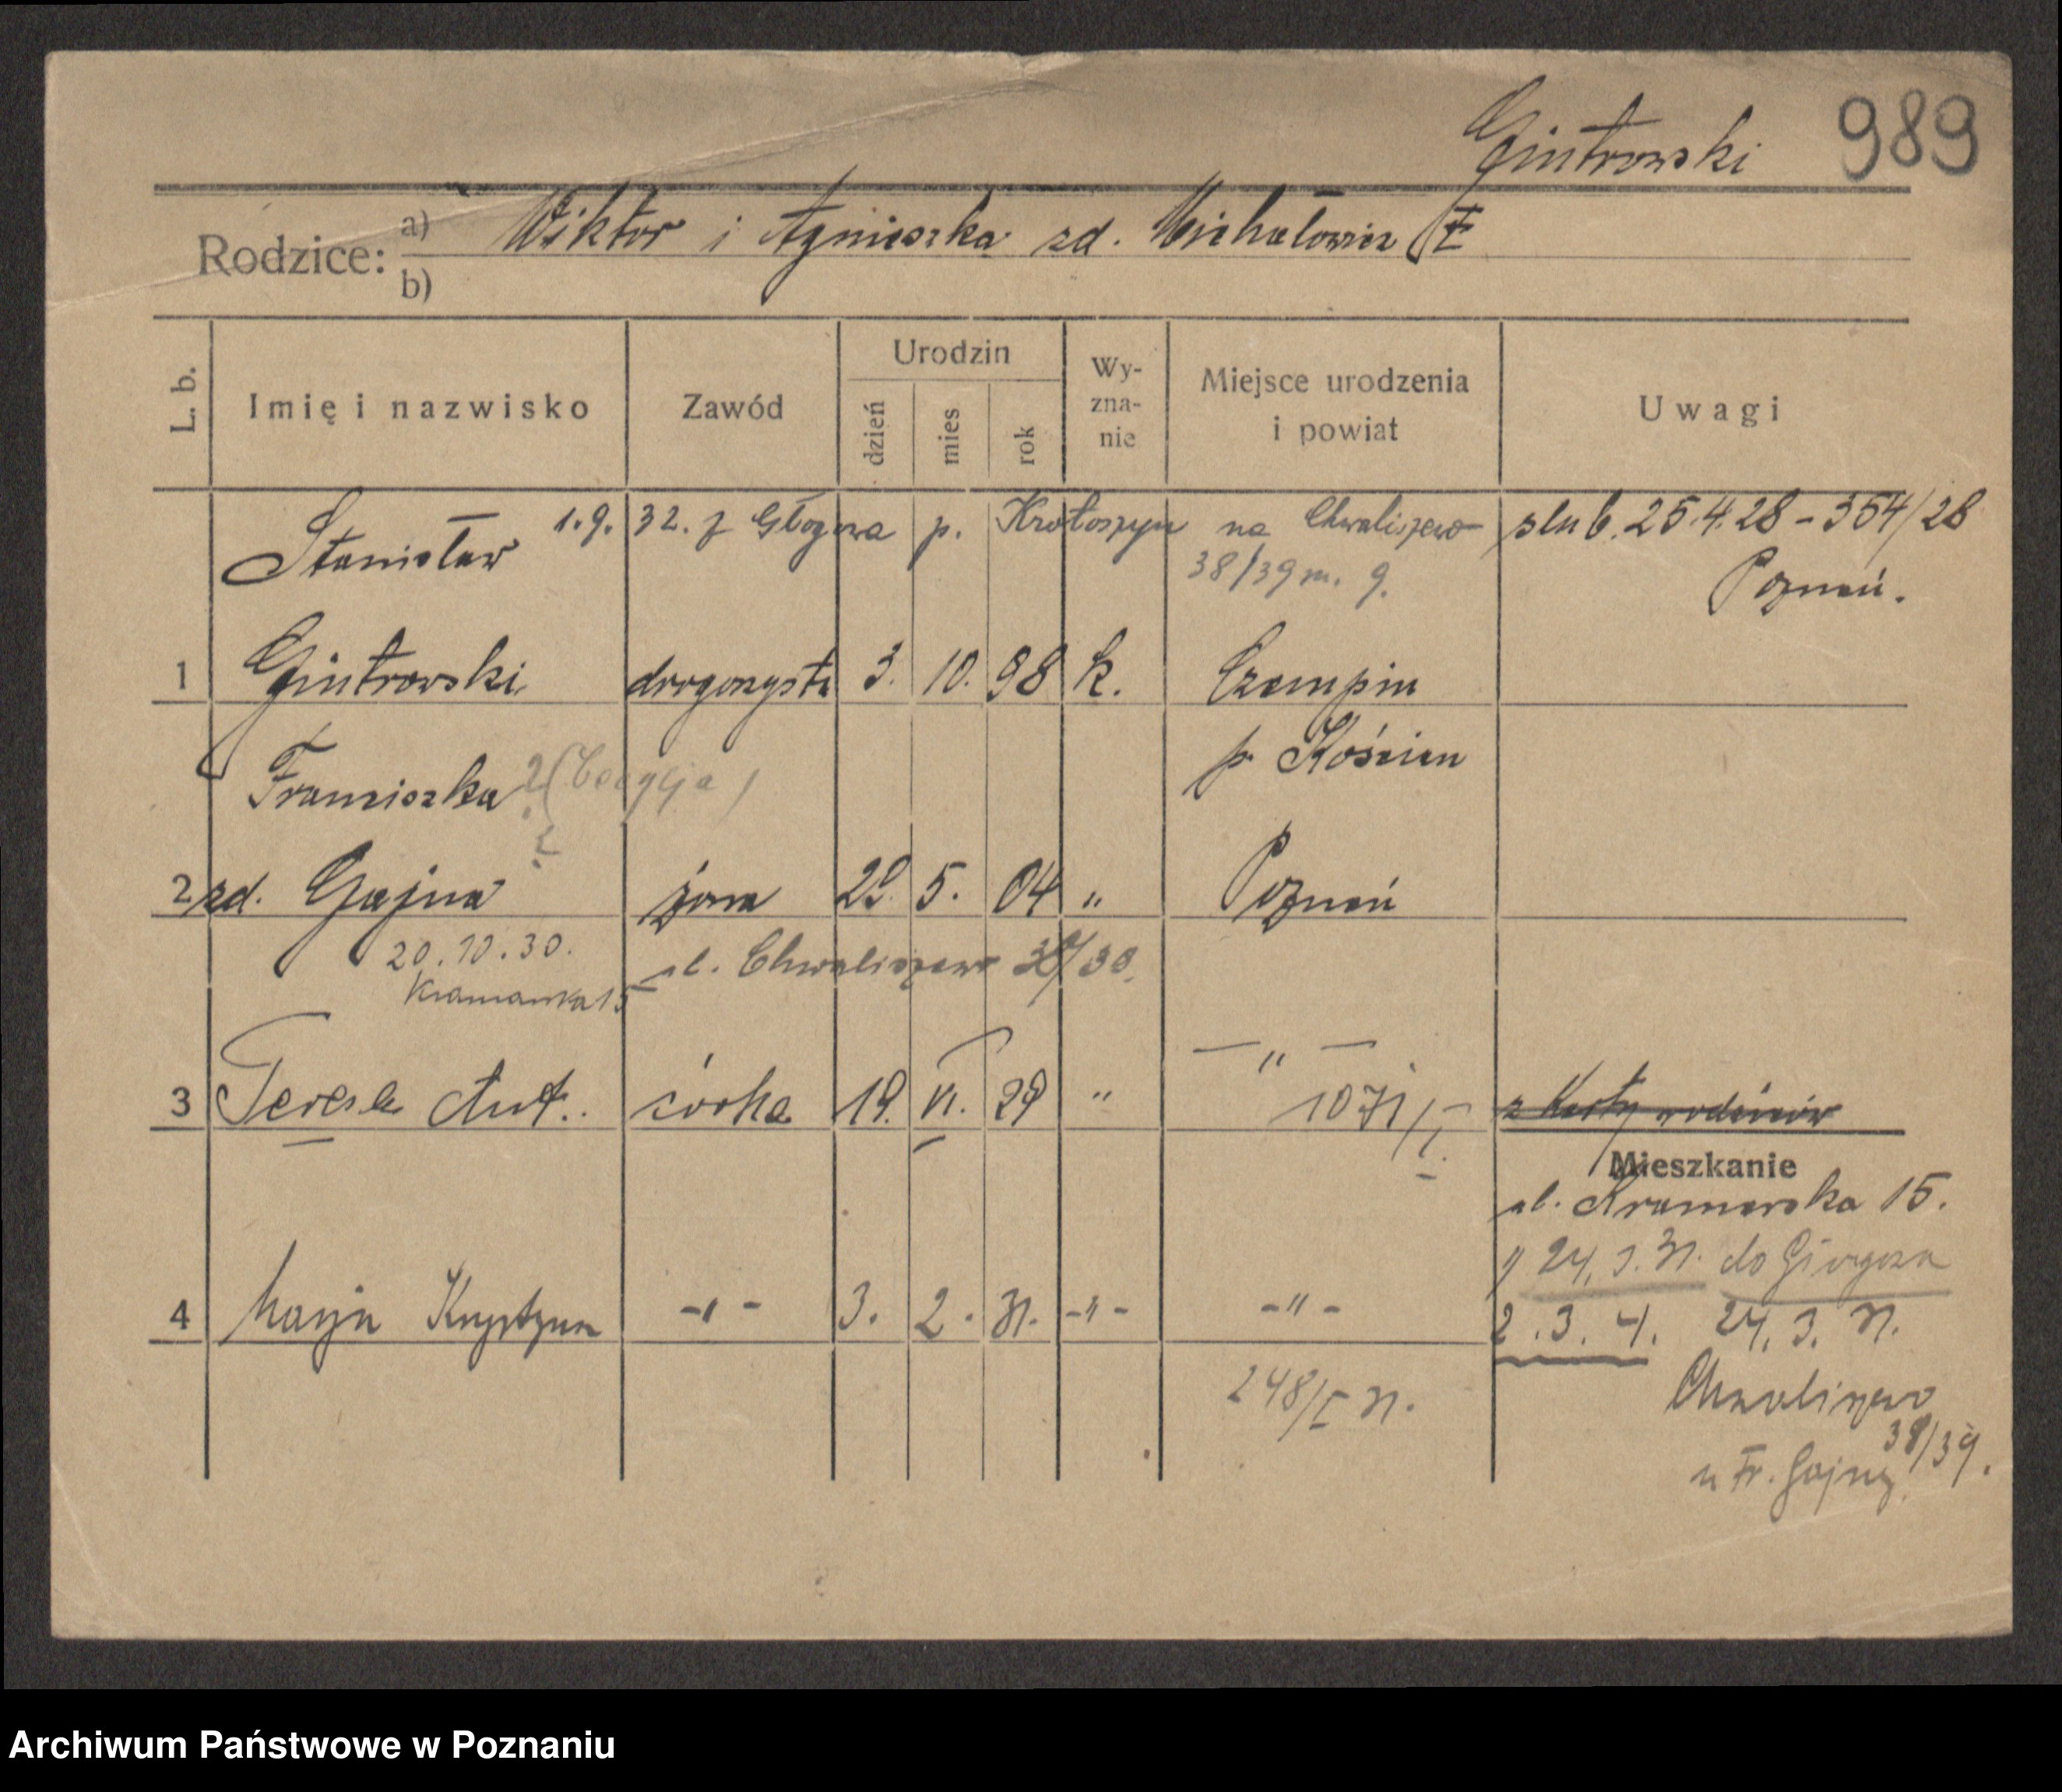 Gintrowski 989
Rodzice: a) Wiktor i Agnieszka zd. Michałowicz
b)
L. b.
Imię i nazwisko
Zawód
Urodzin
dzień
mies
rok
Wy-
zna-
nie
Miejsce urodzenia
i powiat
Uwagi
1.9. 32. z Głogowa p. Krotoszyn na Chwaliszewo
38/39 m. 9.
ślub. 25.4.28 - 354/28
Poznań.
Stanisław
1 Gintrowski drogerzysta 3. 10. 98 k. Czempin
p. Kościan
Franciszka ?
2 zd. Gajna żona 29. 5. 04 " Poznań
20.10.30.
Kramarska 15
ul. Chwaliszewo 38/39.
— " —
3 Teresa Ant. córka 19. VI. 29 " 1071/I. z Karty rodziców
Mieszkanie
ul. Kramarska 15.
1/ 24. 3. 31. do
4 Marja Krystyna -"- 3. 2. 31. -"- -"-
2. 3. 4. 24. 3. 31.
248/I 31.
Chwaliszewo
38/39.
u Fr. Gajny
Archiwum Państwowe w Poznaniu